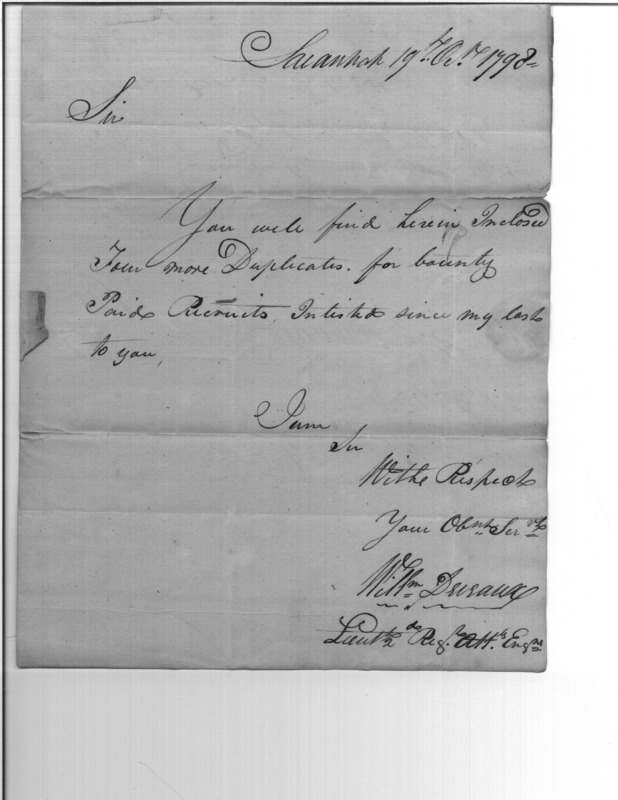 Savannah 19th Oct. 1798
Sir
You will find herein Inclosed
Four more Duplicates. for bounty
Paid Recruits Intisted since my last
to you,
I am
Sir
Withe Respect
Your Obnt Servt
Willm
Lieut 2d Regt Att. Engrs